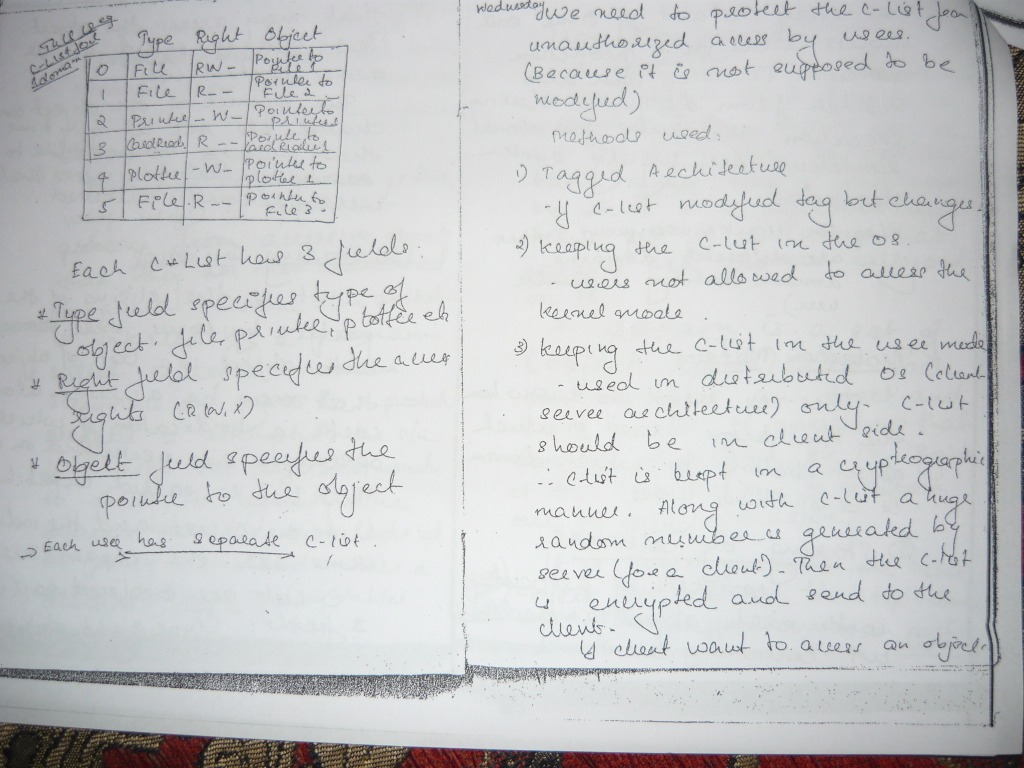 This is eg
C-List for 1
domain
Type Right Object
0 File RW- Pointer to File 1
1 File R-- Pointer to File 2
2 Printer -W- Pointer to printer
3 Cardreader R-- Pointer to cardreader
4 Plotter -W- Pointer to plotter 1
5 File R-- pointer to File 3.
Each C-List has 3 fields.
* Type field specifies type of
object. file, printer, plotter etc
* Right field specifies the access
rights (R, W, X)
* Object field specifies the
pointer to the object
→ Each user has separate C-list.
Wednesday
We need to protect the C-list from
unauthorized access by users.
(Because it is not supposed to be
modified)
Methods used:
1) Tagged Architecture
- If C-list modified tag bit changes.
2) keeping the C-list in the OS.
- users not allowed to access the
kernel mode.
3) keeping the C-list in the user mode
- used in distributed OS (client
server architecture) only. C-list
should be in client side.
∴ C-list is kept in a cryptographic
manner. Along with C-list a huge
random number is generated by
server (for a client). Then the C-list
is encrypted and send to the
client.
If client want to access an object.